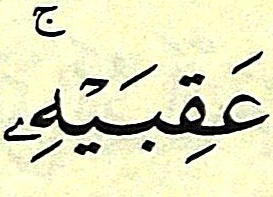 عَقِبَيْهِۦ ۚ